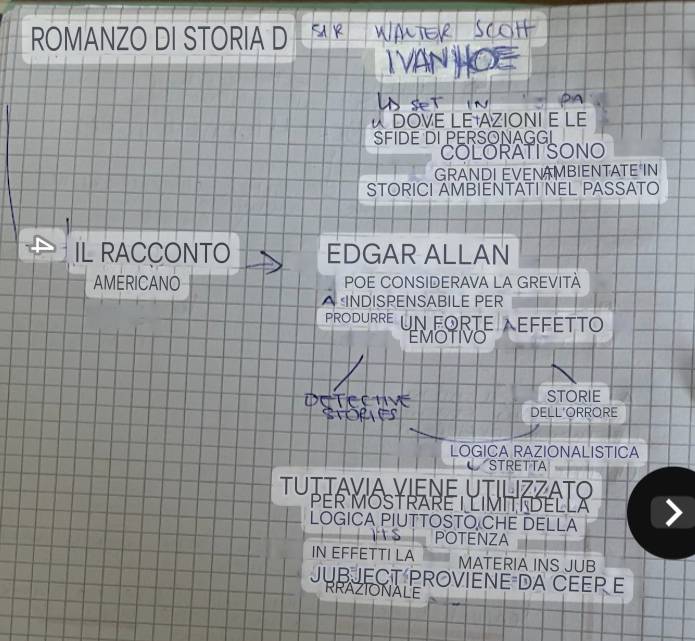 ROMANZO DI STORIA D
SIR WALTER SCOTT
IVANHOE
SET IN PA
DOVE LE AZIONI E LE
SFIDE DI PERSONAGGI
COLORATI SONO
GRANDI EVENTI AMBIENTATE IN
STORICI AMBIENTATI NEL PASSATO
4 IL RACCONTO
AMERICANO
EDGAR ALLAN
POE CONSIDERAVA LA GREVITÀ
INDISPENSABILE PER
PRODURRE UN FORTE EFFETTO
EMOTIVO
DETECTIVE
STORIES
STORIE
DELL'ORRORE
LOGICA RAZIONALISTICA
STRETTA
TUTTAVIA VIENE UTILIZZATO
PER MOSTRARE I LIMITI DELLA
LOGICA PIUTTOSTO CHE DELLA
ITS POTENZA
IN EFFETTI LA MATERIA INS JUB
JUBJECT PROVIENE DA CEEP E
RRAZIONALE